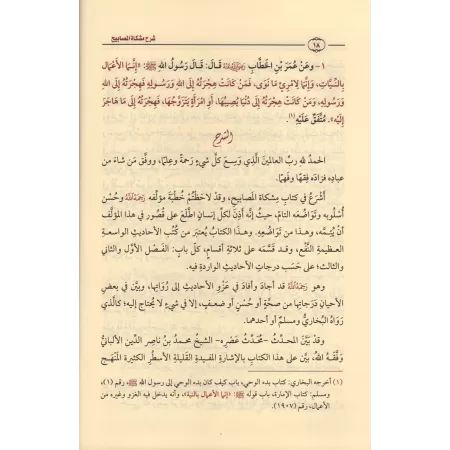 ١٨
شرح مشكاة المصابيح
١- وعَنْ عُمَرَ بْنِ الخَطَّابِ رَضِيَ اللهُ عَنْهُ قَالَ: قَالَ رَسُولُ اللهِ ﷺ: «إِنَّمَا الأَعْمَالُ
بِالنِّيَّاتِ، وَإِنَّمَا لِامْرِئٍ مَا نَوَى، فَمَنْ كَانَتْ هِجْرَتُهُ إِلَى اللهِ وَرَسُولِهِ فَهِجْرَتُهُ إِلَى اللهِ
وَرَسُولِهِ، وَمَنْ كَانَتْ هِجْرَتُهُ إِلَى دُنْيَا يُصِيبُهَا، أَوِ امْرَأَةٍ يَتَزَوَّجُهَا، فَهِجْرَتُهُ إِلَى مَا هَاجَرَ
إِلَيْهِ». مُتَّفَقٌ عَلَيْهِ(١).
الشرح
الحمدُ للهِ ربِّ العالمينَ الَّذِي وَسِعَ كلَّ شيءٍ رَحمةً وعِلمًا، ووفَّق مَن شاءَ مِن
عبادِه فزادَه فِقهًا وفَهمًا.
أَشْرَعُ في كتابِ مِشكاةِ المصابيحِ، وقدْ لاحَظْتُمْ خُطبَةَ مؤلِّفه رَحِمَهُ اللهُ وحُسْنَ
أُسْلُوبِه وتَوَاضُعَه التامَّ، حيثُ إنَّه أَذِنَ لكلِّ إنسانٍ اطَّلعَ على قُصُورٍ في هذا المؤلَّفِ
أنْ يُتِمَّه، وهذا مِن تَوَاضُعِهِ. وهذا الكتابُ يُعتبَر مِن كُتُبِ الأحاديثِ الواسعةِ
العظيمةِ النَّفْعِ، وقد قَسَّمَه على ثلاثةِ أقسامٍ، كلَّ بابٍ: الفَصْل الأوَّل والثاني
والثالث؛ على حَسَب درجاتِ الأحاديثِ الواردةِ فيه.
وهو رَحِمَهُ اللهُ قد أجادَ وأفادَ في عَزْوِ الأحاديثِ إلى رُوَاتِها، وبيَّن في بعضِ
الأحيانِ دَرَجاتِها من صحَّةٍ أو حُسْنٍ أو ضعفٍ، إلا في شيءٍ لا يُحتاج إليه؛ كالَّذي
رَوَاهُ البُخَاريُّ ومسلمٌ أو أحدهما.
وقدْ بيَّنَ المحدِّثُ -مُحدِّثُ عَصْرِه- الشيخُ محمدُ بنُ ناصرِ الدِّينِ الألبانيُّ
وَفَّقَهُ اللهُ، بيَّن على هذا الكتابِ بالإشارةِ المفيدةِ القليلةِ الأسطُرِ الكثيرةِ المنْهَجِ
(١) أخرجه البخاري: كتاب بدء الوحي، باب كيف كان بدء الوحي إلى رسول الله ﷺ، رقم (١)،
ومسلم: كتاب الإمارة، باب قوله ﷺ: «إنما الأعمال بالنية»، وأنه يدخل فيه الغزو وغيره من
الأعمال، رقم (١٩٠٧).